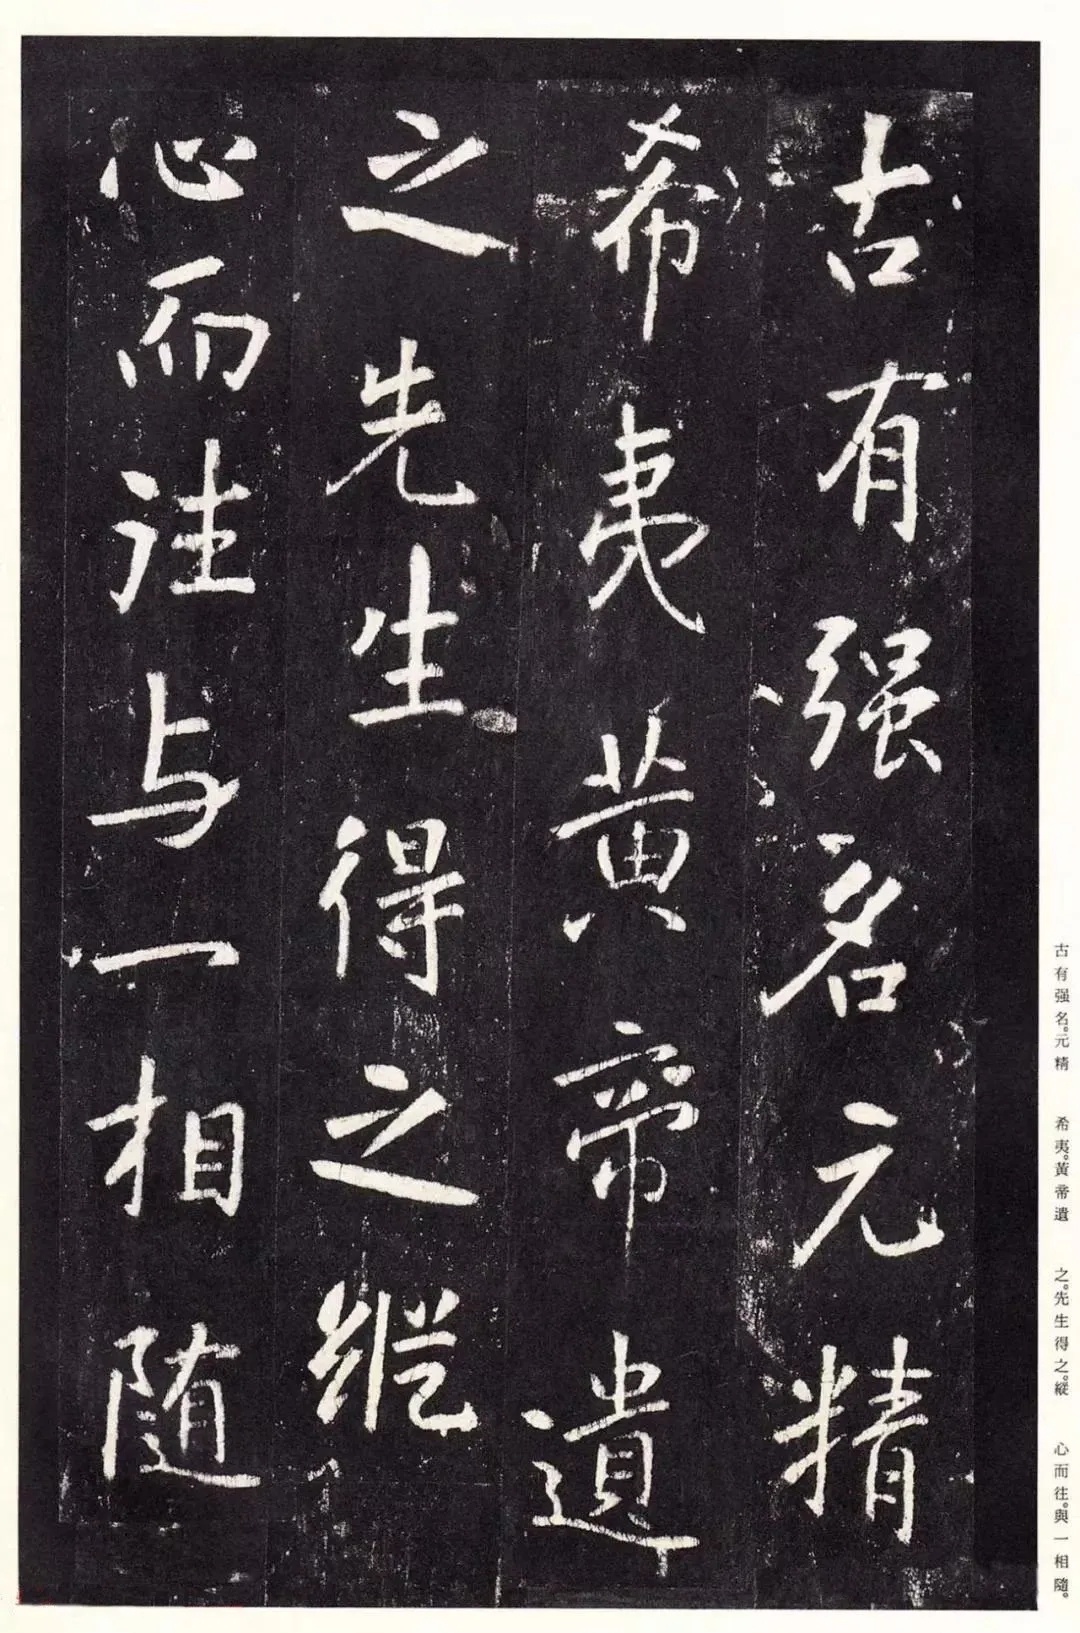 古有强名元精
希夷黄帝遺
之先生得之縱
心而往与一相随
古有强名。元精　希夷。黃帝遺　之。先生得之。縱　心而往。與一相隨。